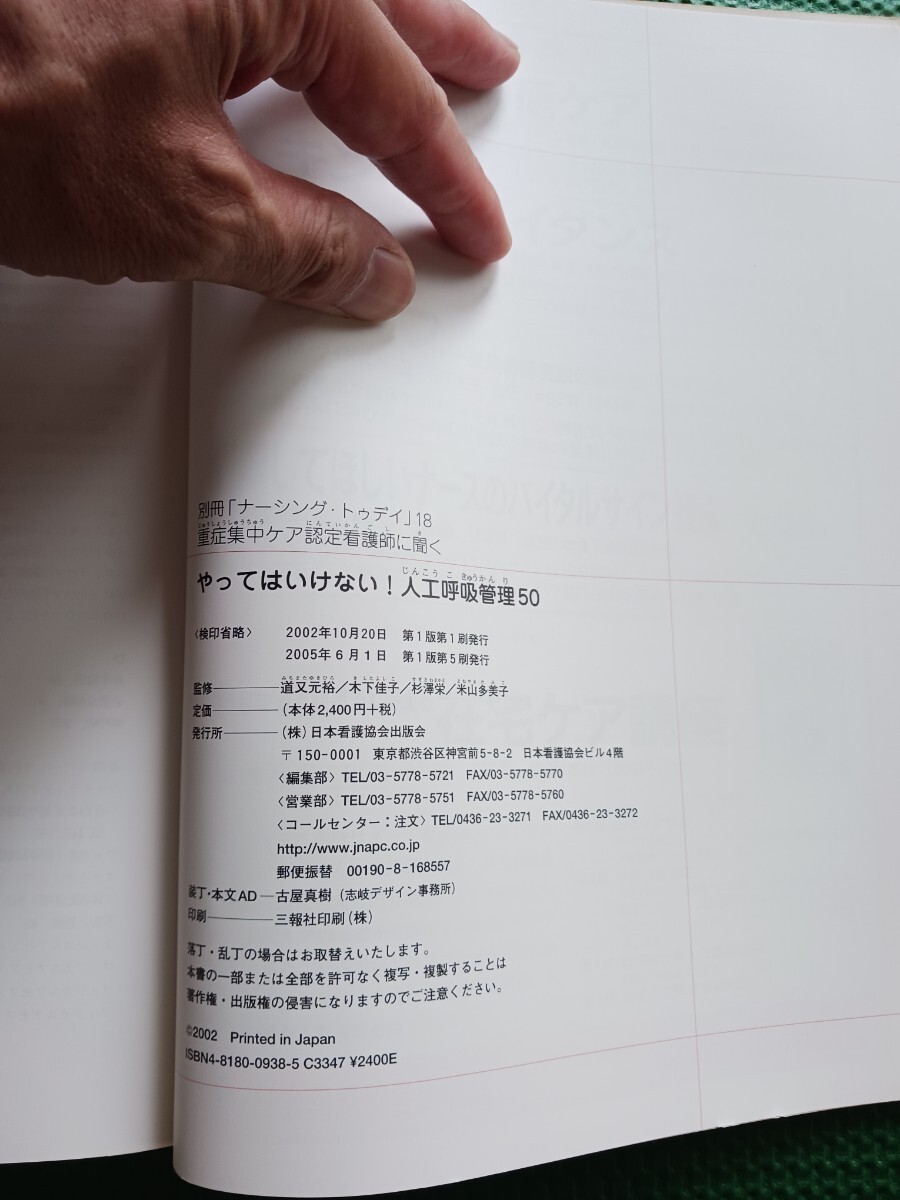 別冊「ナーシング・トゥデイ」18
じゅうしょうしゅうちゅう にんていかんごし き
重症集中ケア認定看護師に聞く
じんこうこきゅうかんり
やってはいけない！人工呼吸管理50
〈検印省略〉 2002年10月20日 第1版第1刷発行
2005年6月1日 第1版第5刷発行
みちまたゆきひろ きのしたよしこ すぎさわさかえ よねやまたみこ
監修 道又元裕／木下佳子／杉澤栄／米山多美子
定価 （本体2,400円＋税）
発行所 （株）日本看護協会出版会
〒150-0001 東京都渋谷区神宮前5-8-2 日本看護協会ビル4階
〈編集部〉TEL/03-5778-5721 FAX/03-5778-5770
〈営業部〉TEL/03-5778-5751 FAX/03-5778-5760
〈コールセンター：注文〉TEL/0436-23-3271 FAX/0436-23-3272
http://www.jnapc.co.jp
郵便振替 00190-8-168557
装丁・本文AD 古屋真樹（志岐デザイン事務所）
印刷 三報社印刷（株）
落丁・乱丁の場合はお取替えいたします。
本書の一部または全部を許可なく複写・複製することは
著作権・出版権の侵害になりますのでご注意ください。
©2002 Printed in Japan
ISBN4-8180-0938-5 C3347 ¥2400E